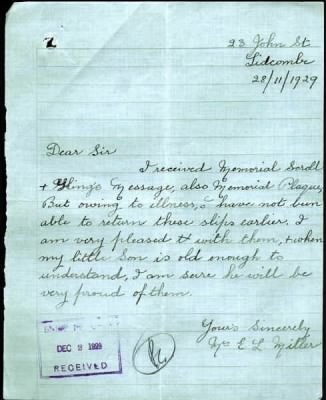 23 John St.
Lidcombe
28/11/1929
Dear Sir
I received Memorial Scroll
+ King's Message, also Memorial Plaque,
But owing to illness, I have not been
able to return these slips earlier. I
am very pleased with them, + when
my little Son is old enough to
understand, I am sure he will be
very proud of them.
Yours Sincerely
Mrs E L Miller
DEC 3 1929
RECEIVED